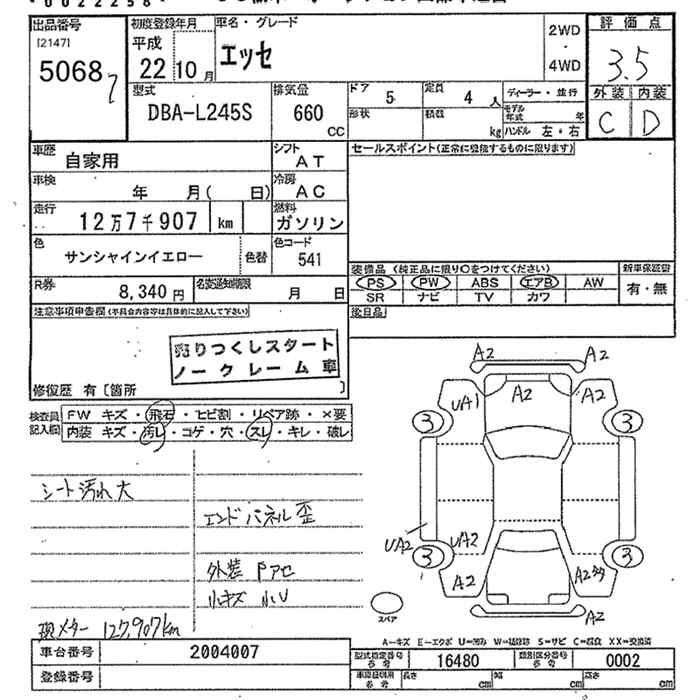 00222258
出品番号
[2147]
5068
初度登録年月
平成
22 10 月
車名・グレード
エッセ
2WD
・
4WD
評価点
3.5
外装 内装
C D
型式
DBA-L245S
排気量
660
CC
ドア
5
定員
4 人
形状
積載
kg
ディーラー・並行
モデル年式 年
ハンドル 左・右
車歴
自家用
シフト
AT
車検
年 月( 日)
冷房
AC
走行
12万7千907 km
燃料
ガソリン
色
サンシャインイエロー
色替
色コード
541
R券
8,340 円
名変通知期限
月 日
セールスポイント(正常に登能するものに限ります)
装備品 (純正品に限り○をつけてください)
PS PW ABS エアB AW
SR ナビ TV カワ
新車保証書
有・無
後日品
注意事項申告欄(不具合内容等は具体的に記入して下さい)
売りつくしスタート
ノークレーム車
修復歴 有[箇所 ]
検査員
記入欄
FW キズ・飛石・ヒビ割・リペア跡・×要
内装 キズ・汚レ・コゲ・穴・スレ・キレ・破レ
シート汚れ大
エンドパネル歪
外装 Pアセ
小キズ 小U
現メター 127,907km
A2 A2
UA1 A2 A2
3 3
UA2 UA2
3 3
A2 A2
A2
スペア
A-キズ E-エクボ U=凹み W=補修跡 S=サビ C=腐食 XX=交換済
車台番号
2004007
型式指定番号
参考
16480
類別区分番号
参考
0002
登録番号
車庫証明用
参考
長さ cm 幅 cm 高さ cm